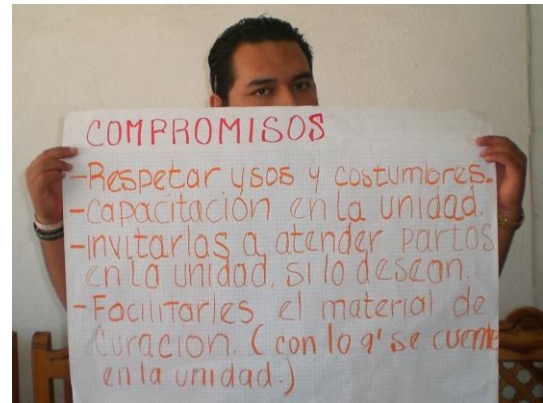 COMPROMISOS
-Respetar usos y costumbres.
-Capacitación en la unidad.
-Invitarlas a atender partos
en la unidad, si lo desean.
-Facilitarles el material de
curacion. (con lo q' se cuente
en la unidad.)